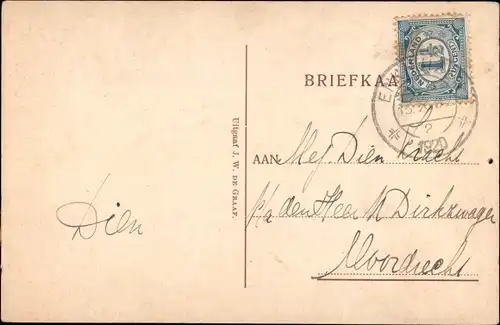 BRIEFKAA
NEDERLAND
1½
1920
Uitgaaf J. W. DE GRAAF.
AAN Mej. Dien
p/a den Heer Dirkzwager
Moordrecht
Dien